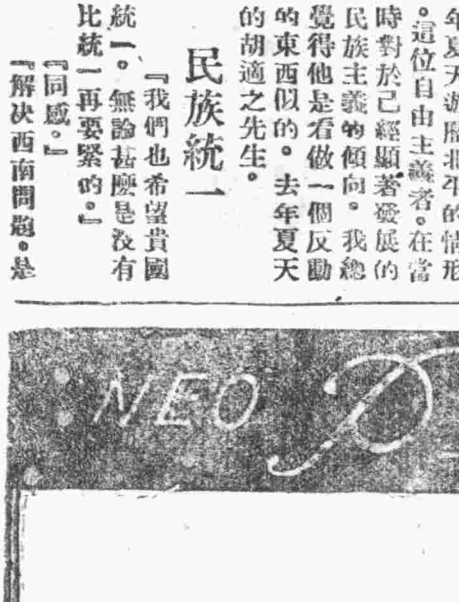 年夏天遊歷北平的情形
。這位自由主義者。在當
時對於已經顯著發展的
民族主義的傾向。我總
覺得他是看做一個反動
的東西似的。去年夏天
的胡適之先生。
民族統一
『我們也希望貴國
統一。無論甚麼是沒有
比統一再要緊的。』
『同感。』
『解决西南問題。是
NEO